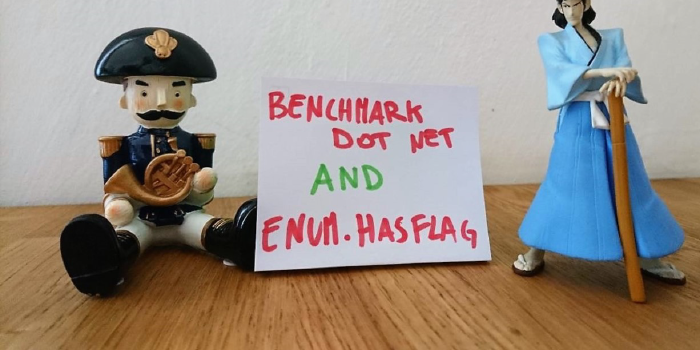 BENCHMARK
DOT NET
AND
ENUM.HASFLAG